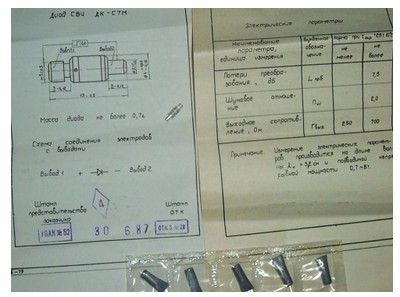 Диод СВЧ ДК-С7М
Вывод1
Вывод2
Масса диода не более 0,7г
Схема соединения электродов
с выводами
Вывод 1 +
- Вывод 2
Штамп
представительства
заказчика
Штамп
ОТК
30 6.87
Электрические параметры
Наименование
параметра,
единица измерения
Буквенное
обозна-
чение
Норма при
не
менее
не
более
Потери преобра-
зования, дБ
L прб
7,5
Шумовое отноше-
ние
2,0
Выходное сопротив-
ление, Ом
250
700
Примечание. Измерение электрических парамет-
ров производится на длине вол-
подводимой
мощности 0,7 мВт.